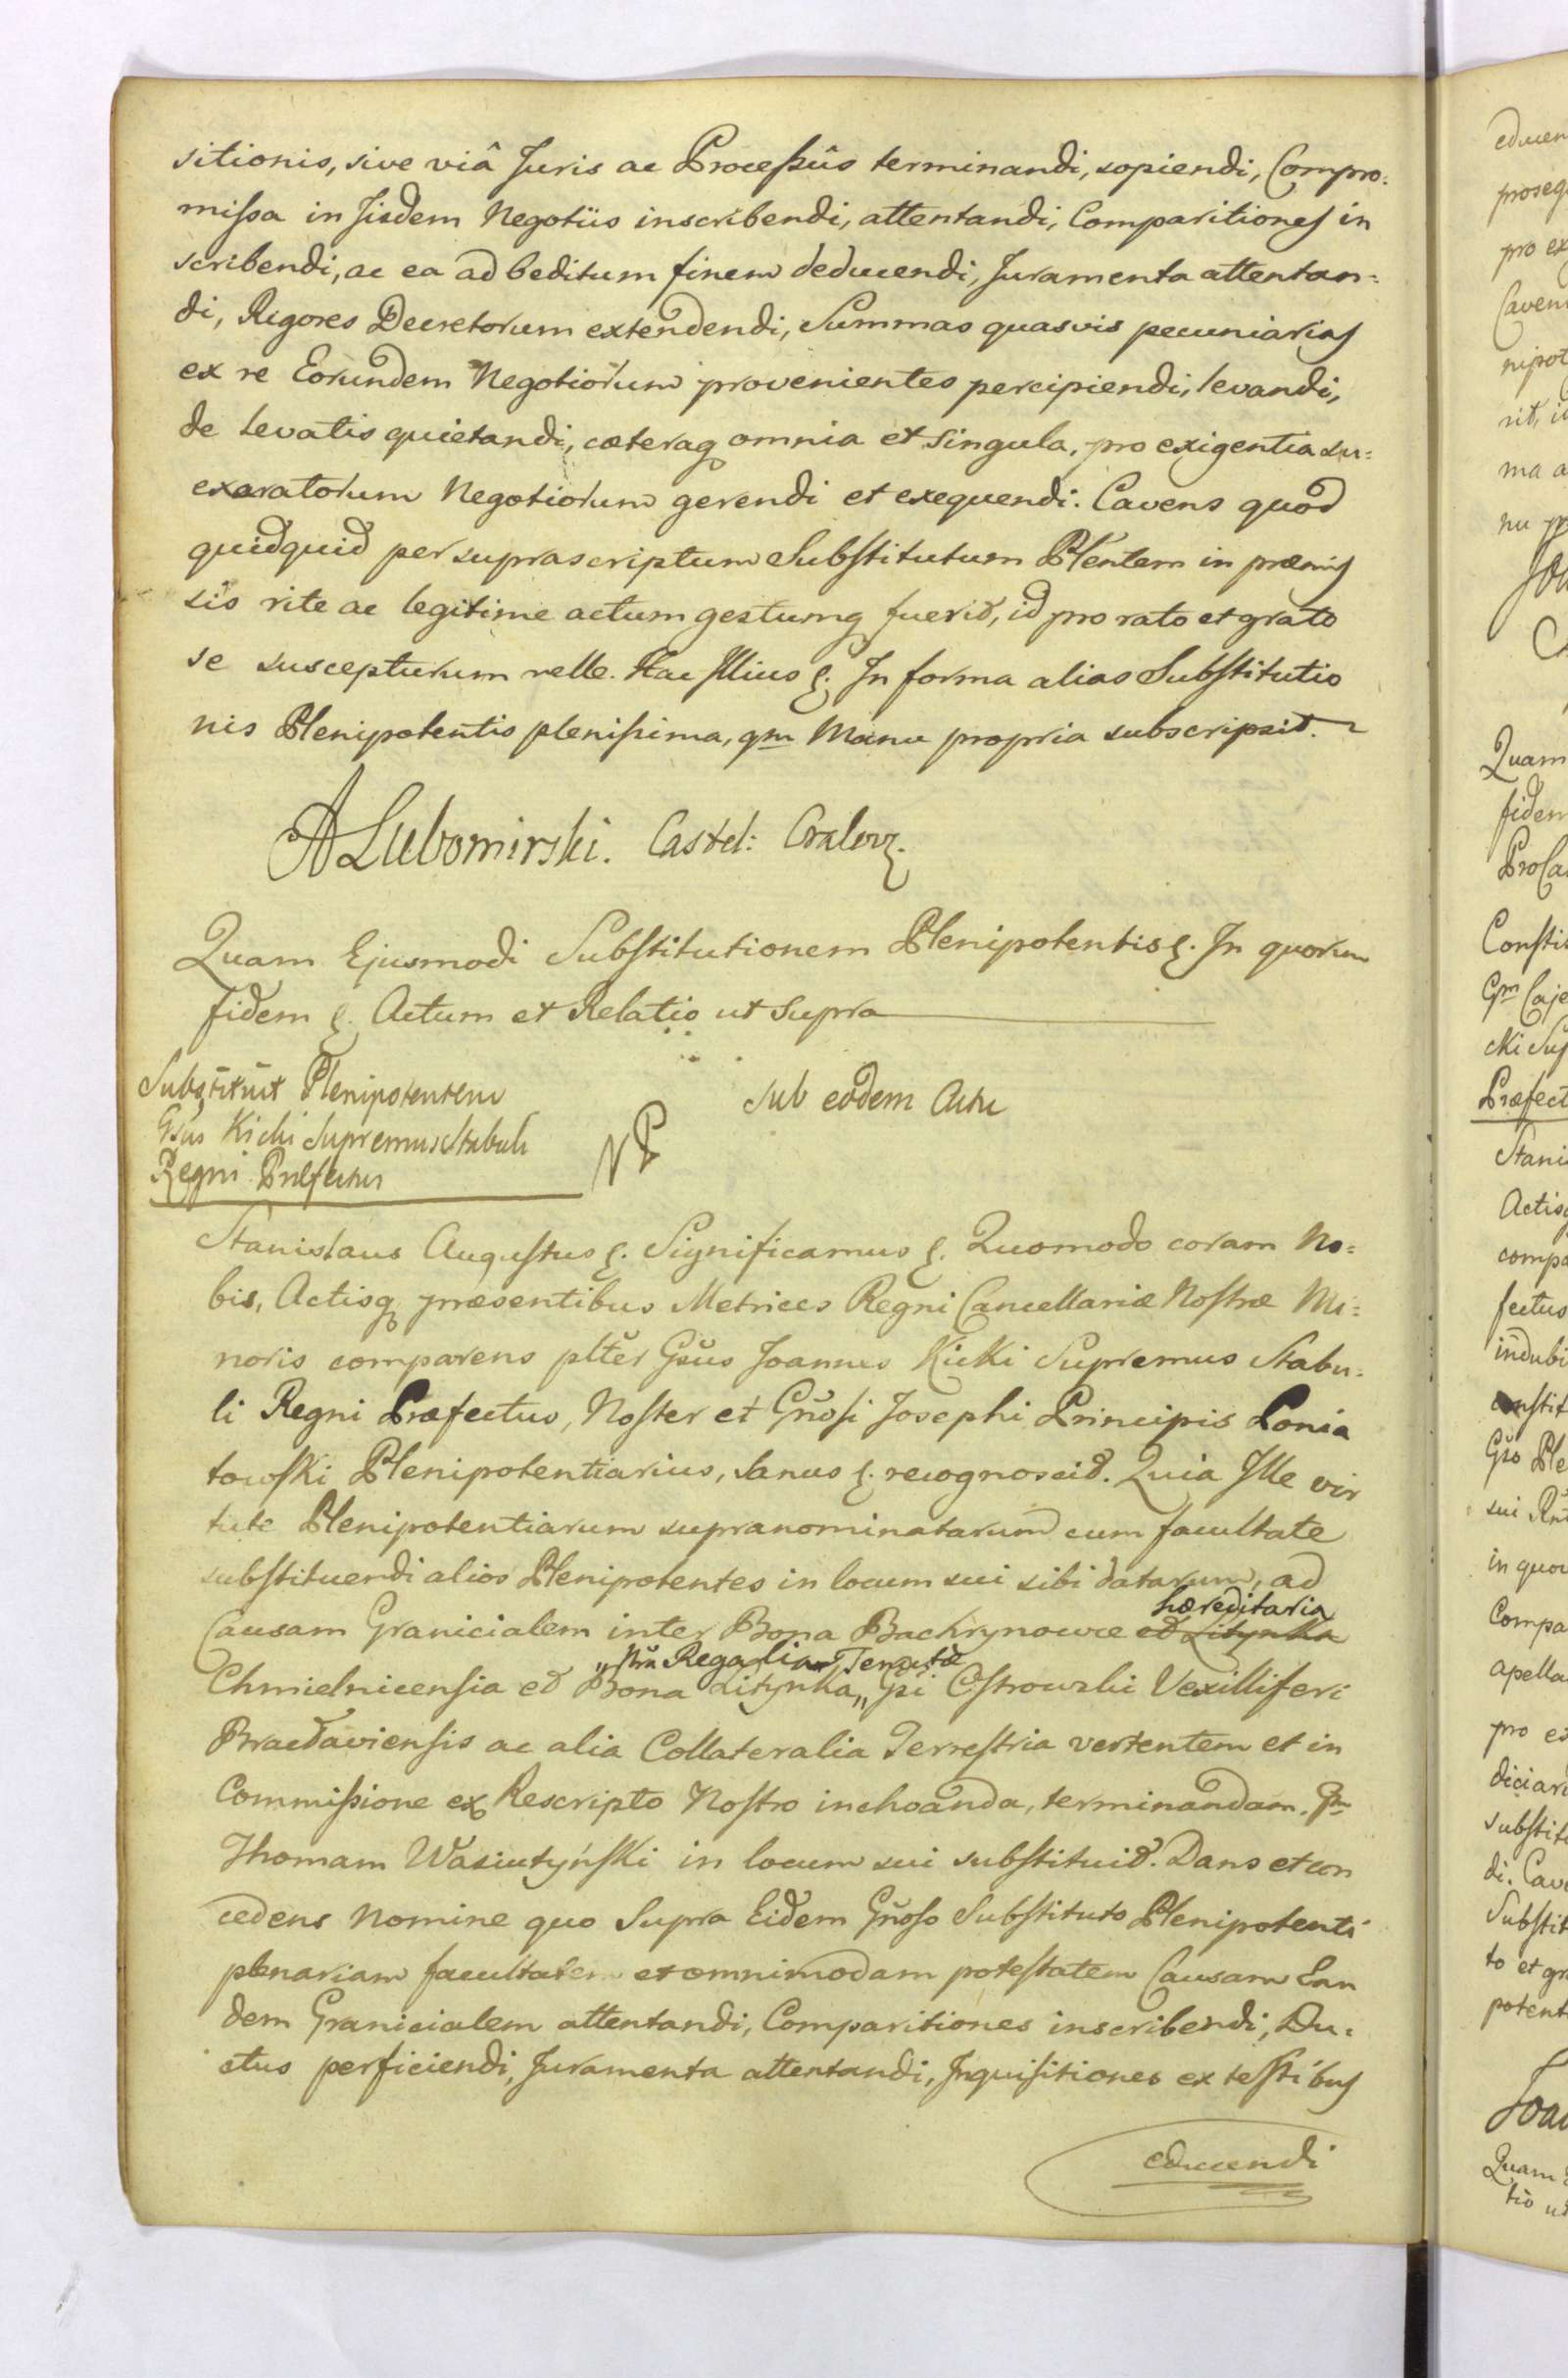 sitionis, sive viâ Juris ac Processûs terminandi, sopiendi, Compro:
missa in Jisdem Negotiis inscribendi, attentandi, Comparitiones in
scribendi, ac ea ad beditum finem deducendi, Juramenta attentan:
di, Rigores Decretorum extendendi, Summas quasvis pecuniarias
ex re Eorundem Negotiorum provenientes percipiendi, levandi,
de levatis quietandi, cæteraq omnia et singula, pro exigentia su:
exaratorum Negotiorum gerendi et exequendi. Cavens quod
quidquid per suprascriptum Substitutum Plentem in præmis
sis rite ac legitime actum gestumq fuerit, id pro rato et grato
se suscepturum velle. Hac Illius &. In forma alias Substitutio
nis Plenipotentis plenissima, qm Manu propria subscripsit.
A Lubomirski. Castel: Cralov.
Quam Ejusmodi Substitutionem Plenipotentis &. In quorum
fidem &. Actum et Relatio ut Supra
Substituit Plenipotentem
Gsus Kicki Supremus Stabuli
Regni Præfectus
NP
Sub eodem Actu
Stanislaus Augustus &. Significamus &. Quomodo coram No:
bis, Actisq præsentibus Metrices Regni Cancellariæ Nostræ Mi:
noris comparens plter Gsus Joannes Kicki Supremus Stabu:
li Regni Præfectus, Noster et Gnosi Josephi Principis Ponia
towski Plenipotentiarius, Sanus &. recognoscit. Quia Ille vir
tute Plenipotentiarum supranominatarum cum facultate
substituendi alios Plenipotentes in locum sui sibi datarum, ad
Causam Granicialem inter Bona Bachrynowce et Litynka hæreditaria
Chmielnicensia et Bona Litynka „Nra Regalia Tenutæ„ Gsi Ostrowski Vexilliferi
Bracłaviensis ac alia Collateralia Terrestria vertentem et in
Commissione ex Rescripto Nostro inchoanda, terminandam. Gm
Thomam Wasiutyński in locum sui substituit. Dans et con
cedens Nomine quo Supra Eidem Gnoso Substituto Plenipotenti
plenariam facultatem et omnimodam potestatem Causam Ean
dem Granicialem attentandi, Comparitiones inscribendi, Du:
ctus perficiendi, Juramenta attentandi, Inquisitiones ex testibus
educendi